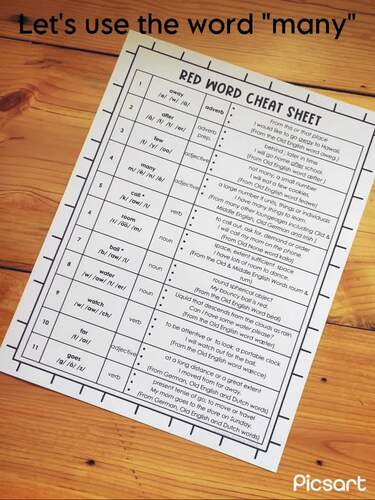 Let's use the word "many"
RED WORD CHEAT SHEET
1
away
/ə/ /w/ /ā/
adverb
From this or that place
I would like to go away to Hawaii.
(From the Old English word aweg.)
2
after
/a/ /f/ /t/ /er/
adverb
prep.
behind; later in time
I will go home after school.
(From the Old English word æfter.)
3
few
/f/ /y/ /oo/
adjective
not many; a small number
I will eat a few cookies.
(From Old English word feawe)
4
many
/m/ /ĕ/ /n/ /ē/
adjective
a large number if units, things or individuals
I have many things to learn.
(From many other languages including Old &
Middle English, Old German and Irish.)
5
call *
/k/ /aw/ /l/
verb
to call out, ask for, demand or order
I will call my mom on the phone.
(From Old Norse word kalla)
6
room
/r/ /oo/ /m/
noun
space, extent sufficient space
I have lots of room to dance.
(From the Old & Middle English Words roum &
rum)
7
ball *
/b/ /aw/ /l/
noun
round spherical object
My bouncy ball is red.
(From the Old English Word beal)
8
water
/w/ /aw/ /t/ /er/
noun
Liquid that descends from the clouds as rain.
Can I have some water please?
(From the Old English word wæter)
9
watch
/w/ /aw/ /ch/
verb
to be attentive or to look; a portable clock
I will watch out for the ball.
(From the Old English word wæcce)
10
far
/f/ /ar/
adjective
at a long distance or a great extent
I moved far from away.
(From German, Old English and Dutch words)
11
goes
/g/ /ō/ /z/
verb
present tense of go; to move or travel
My mom goes to the store on Sunday.
(From German, Old English and Dutch words)
Picsart